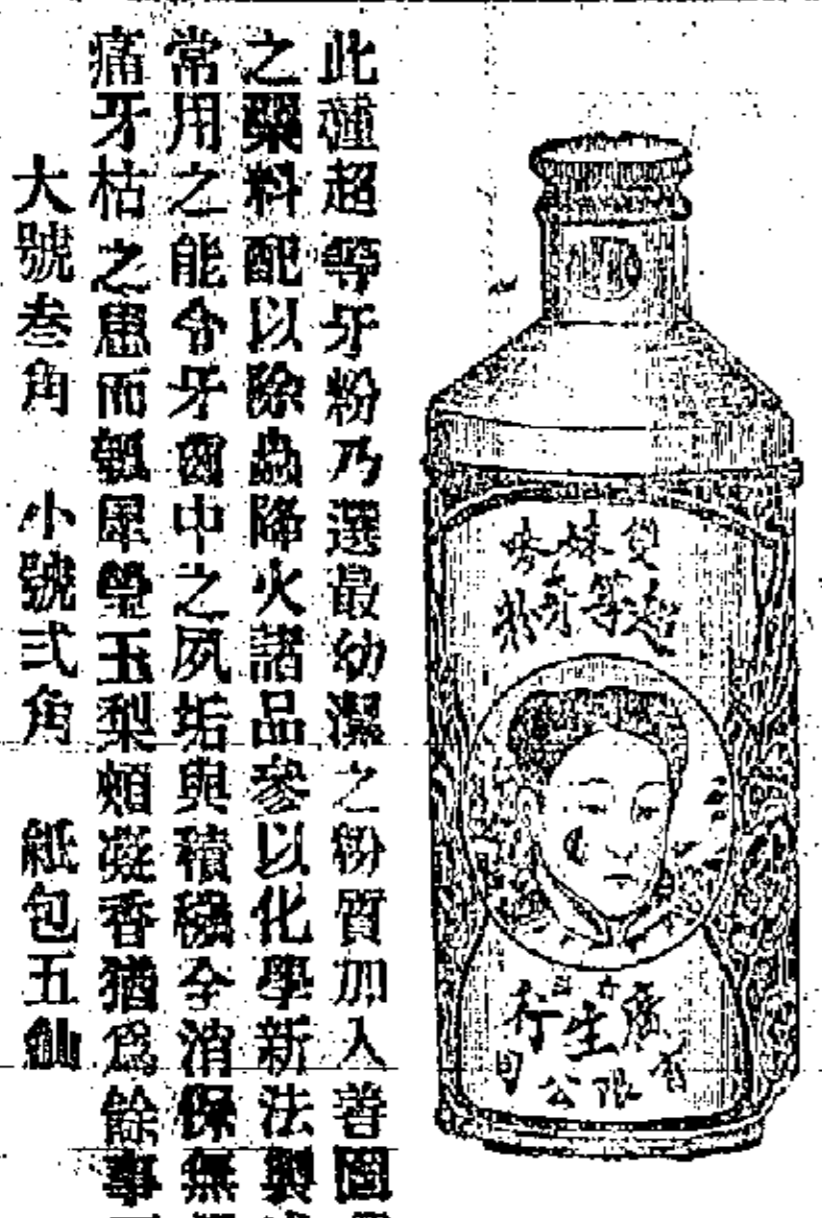 此種超等牙粉乃選最幼潔之粉質加入善固
之藥料配以除蟲降火諸品參以化學新法製
常用之能令牙齒中之夙垢與積穢全消保無
痛牙枯之患而瓠犀瑩玉梨頰凝香猶為餘事
大號叁角 小號弍角 紙包五仙
雙妹嘜
超等牙粉
廣生行
有限公司